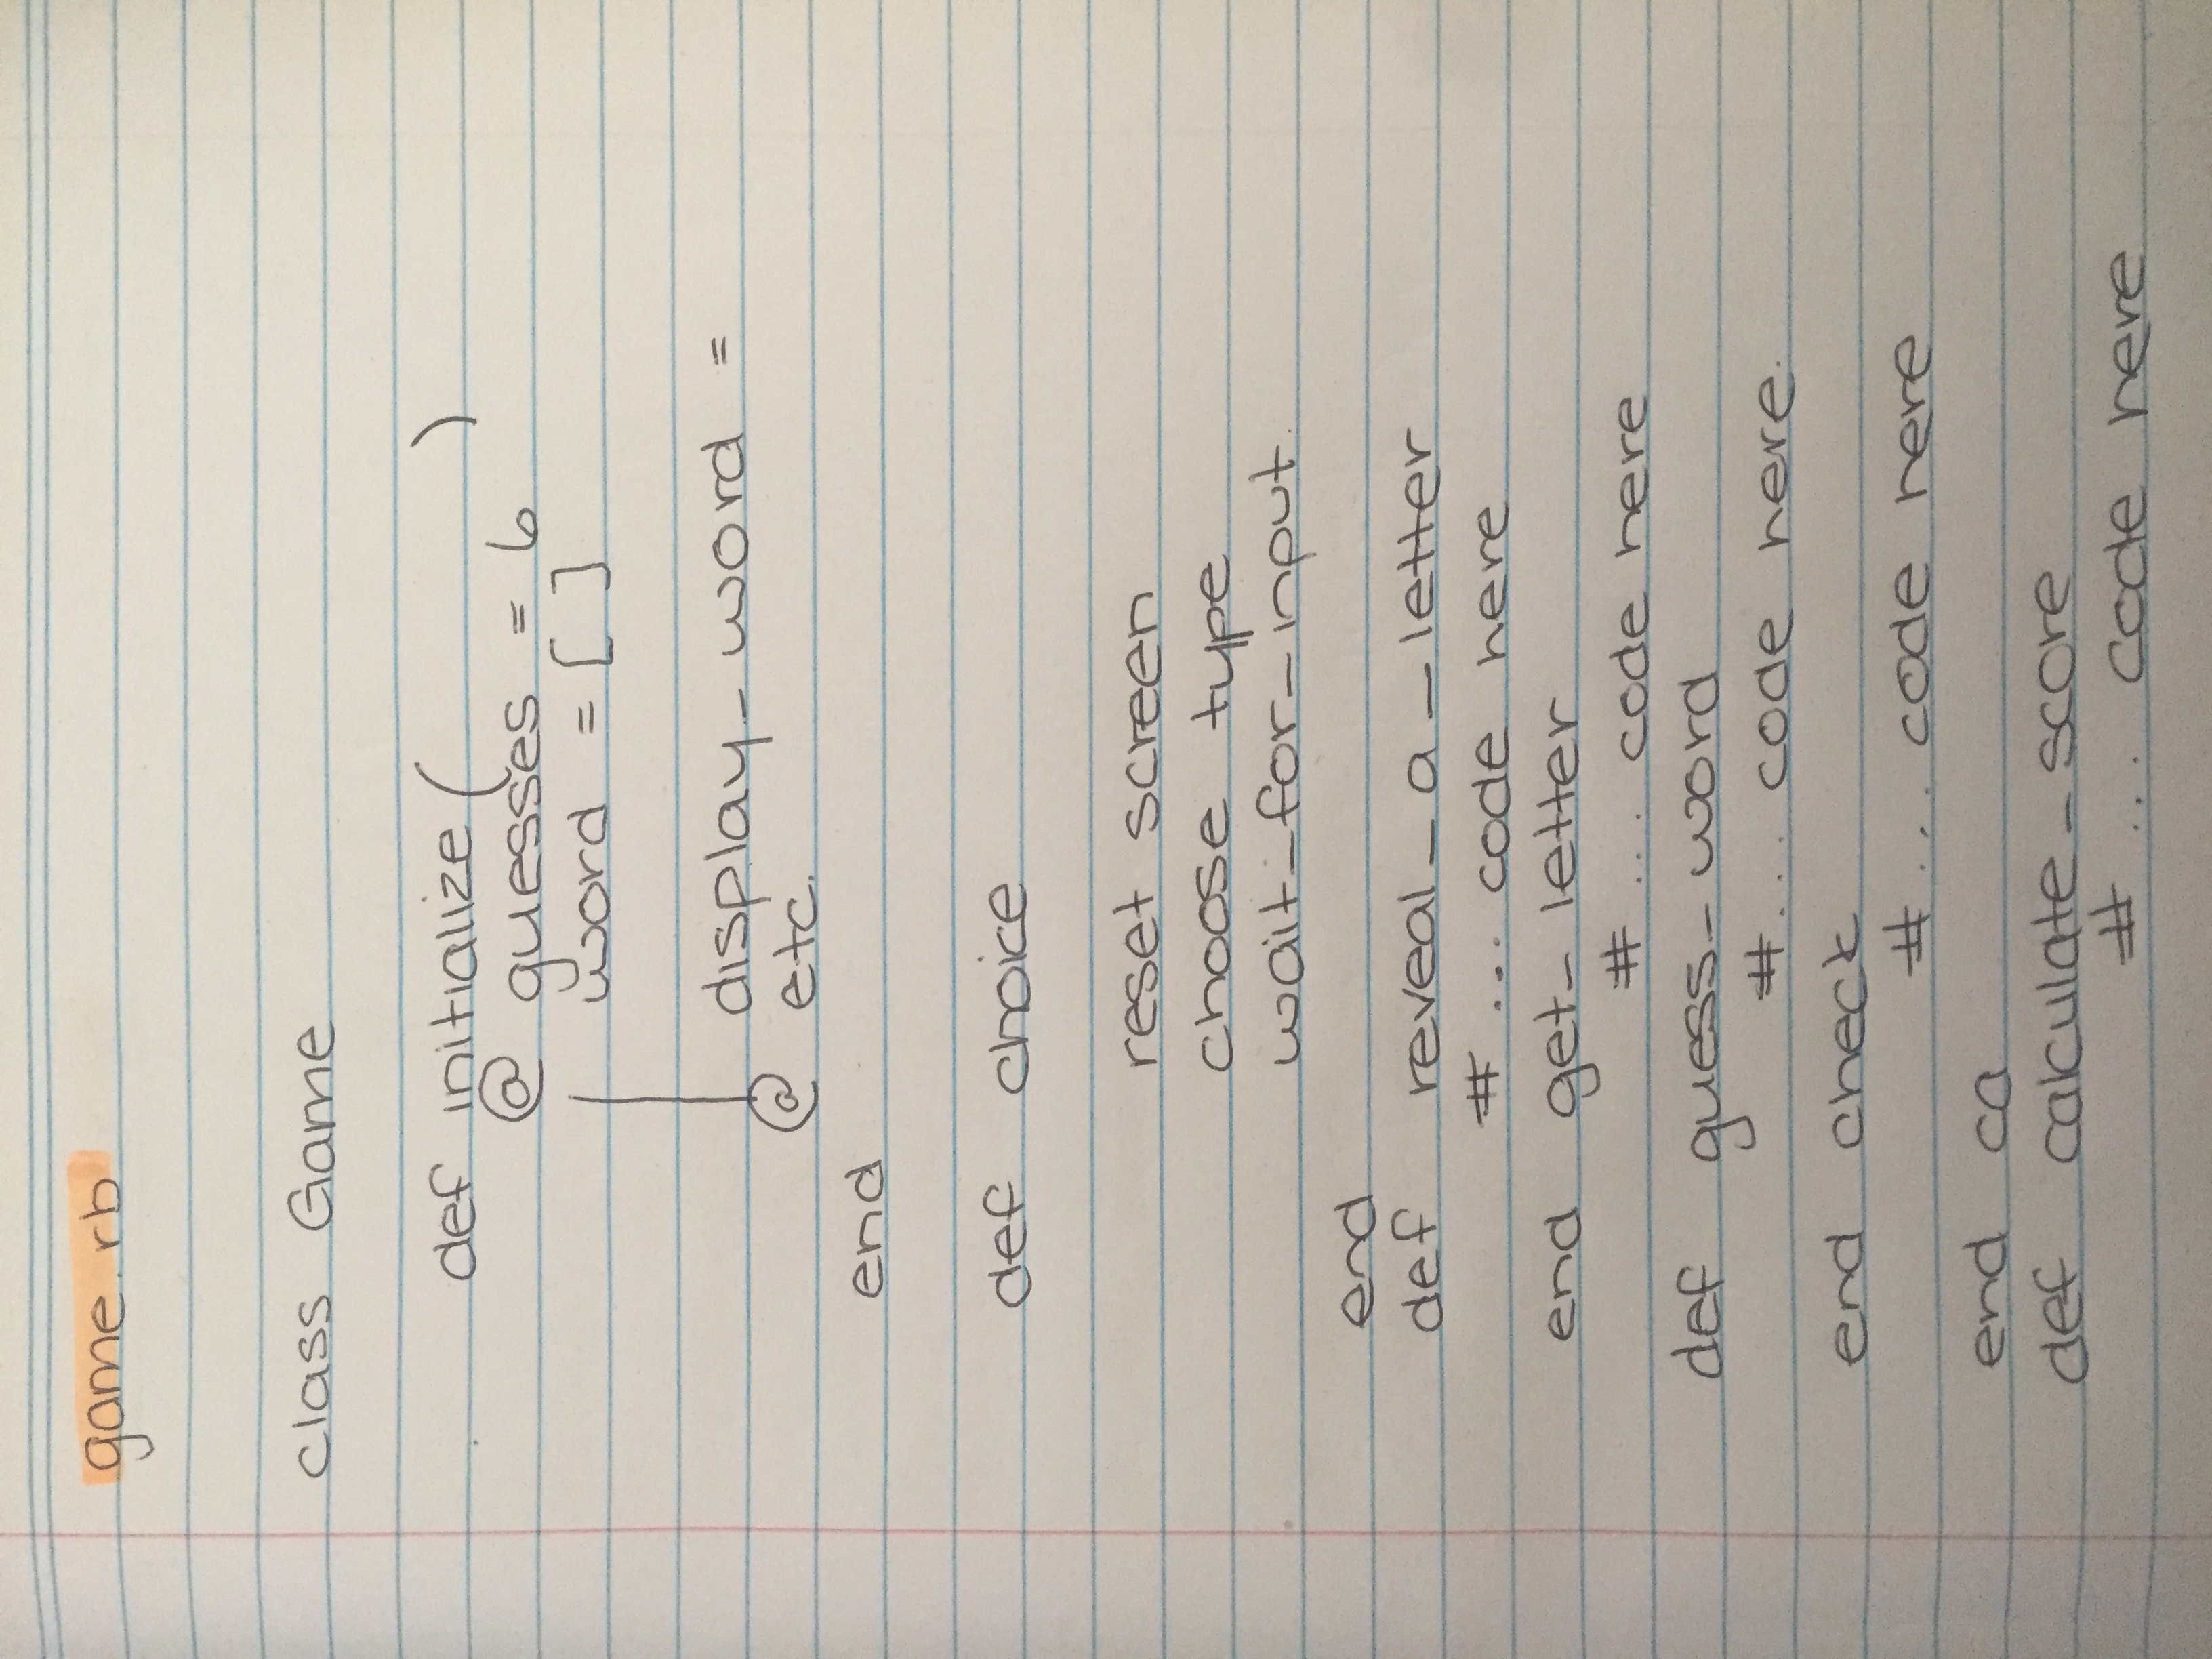 game.rb
class Game
def initialize( )
@ guesses = 6
word = [ ]
display_word =
@ etc.
end
def choice
reset screen
choose type
wait_for_input.
end
def reveal_a_letter
# ... code here
end get_letter
# ... code here
def guess_word
# ... code here.
end check
# ... code here
end ca
def calculate_score
# ... code here